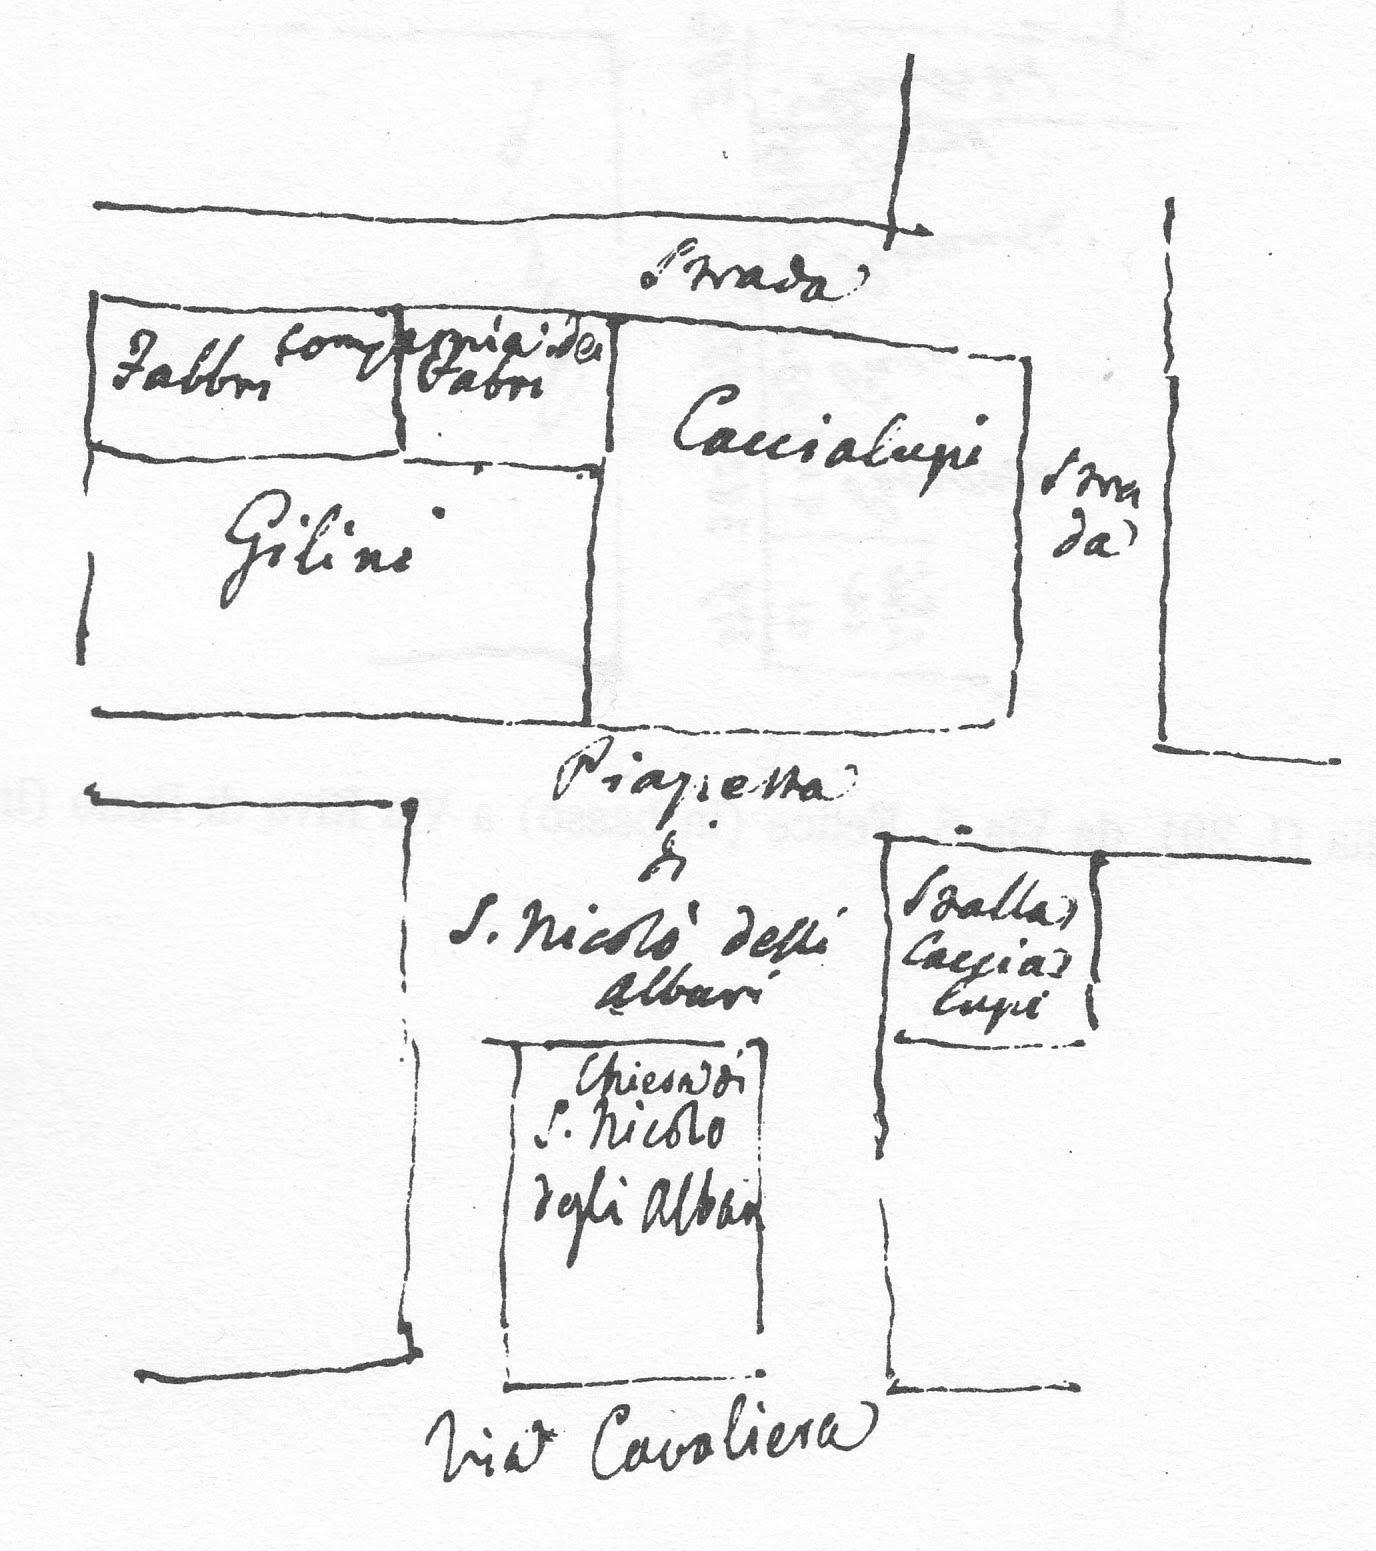 Strada
Fabbri
Compagnia dei
Fabri
Caccialupi
Stra
da
Gilini
Piazzetta
di
S. Nicolò delli
Albari
Stalla
Caccia
lupi
Chiesa di
S. Nicolo
degli Albari
Via Cavaliera